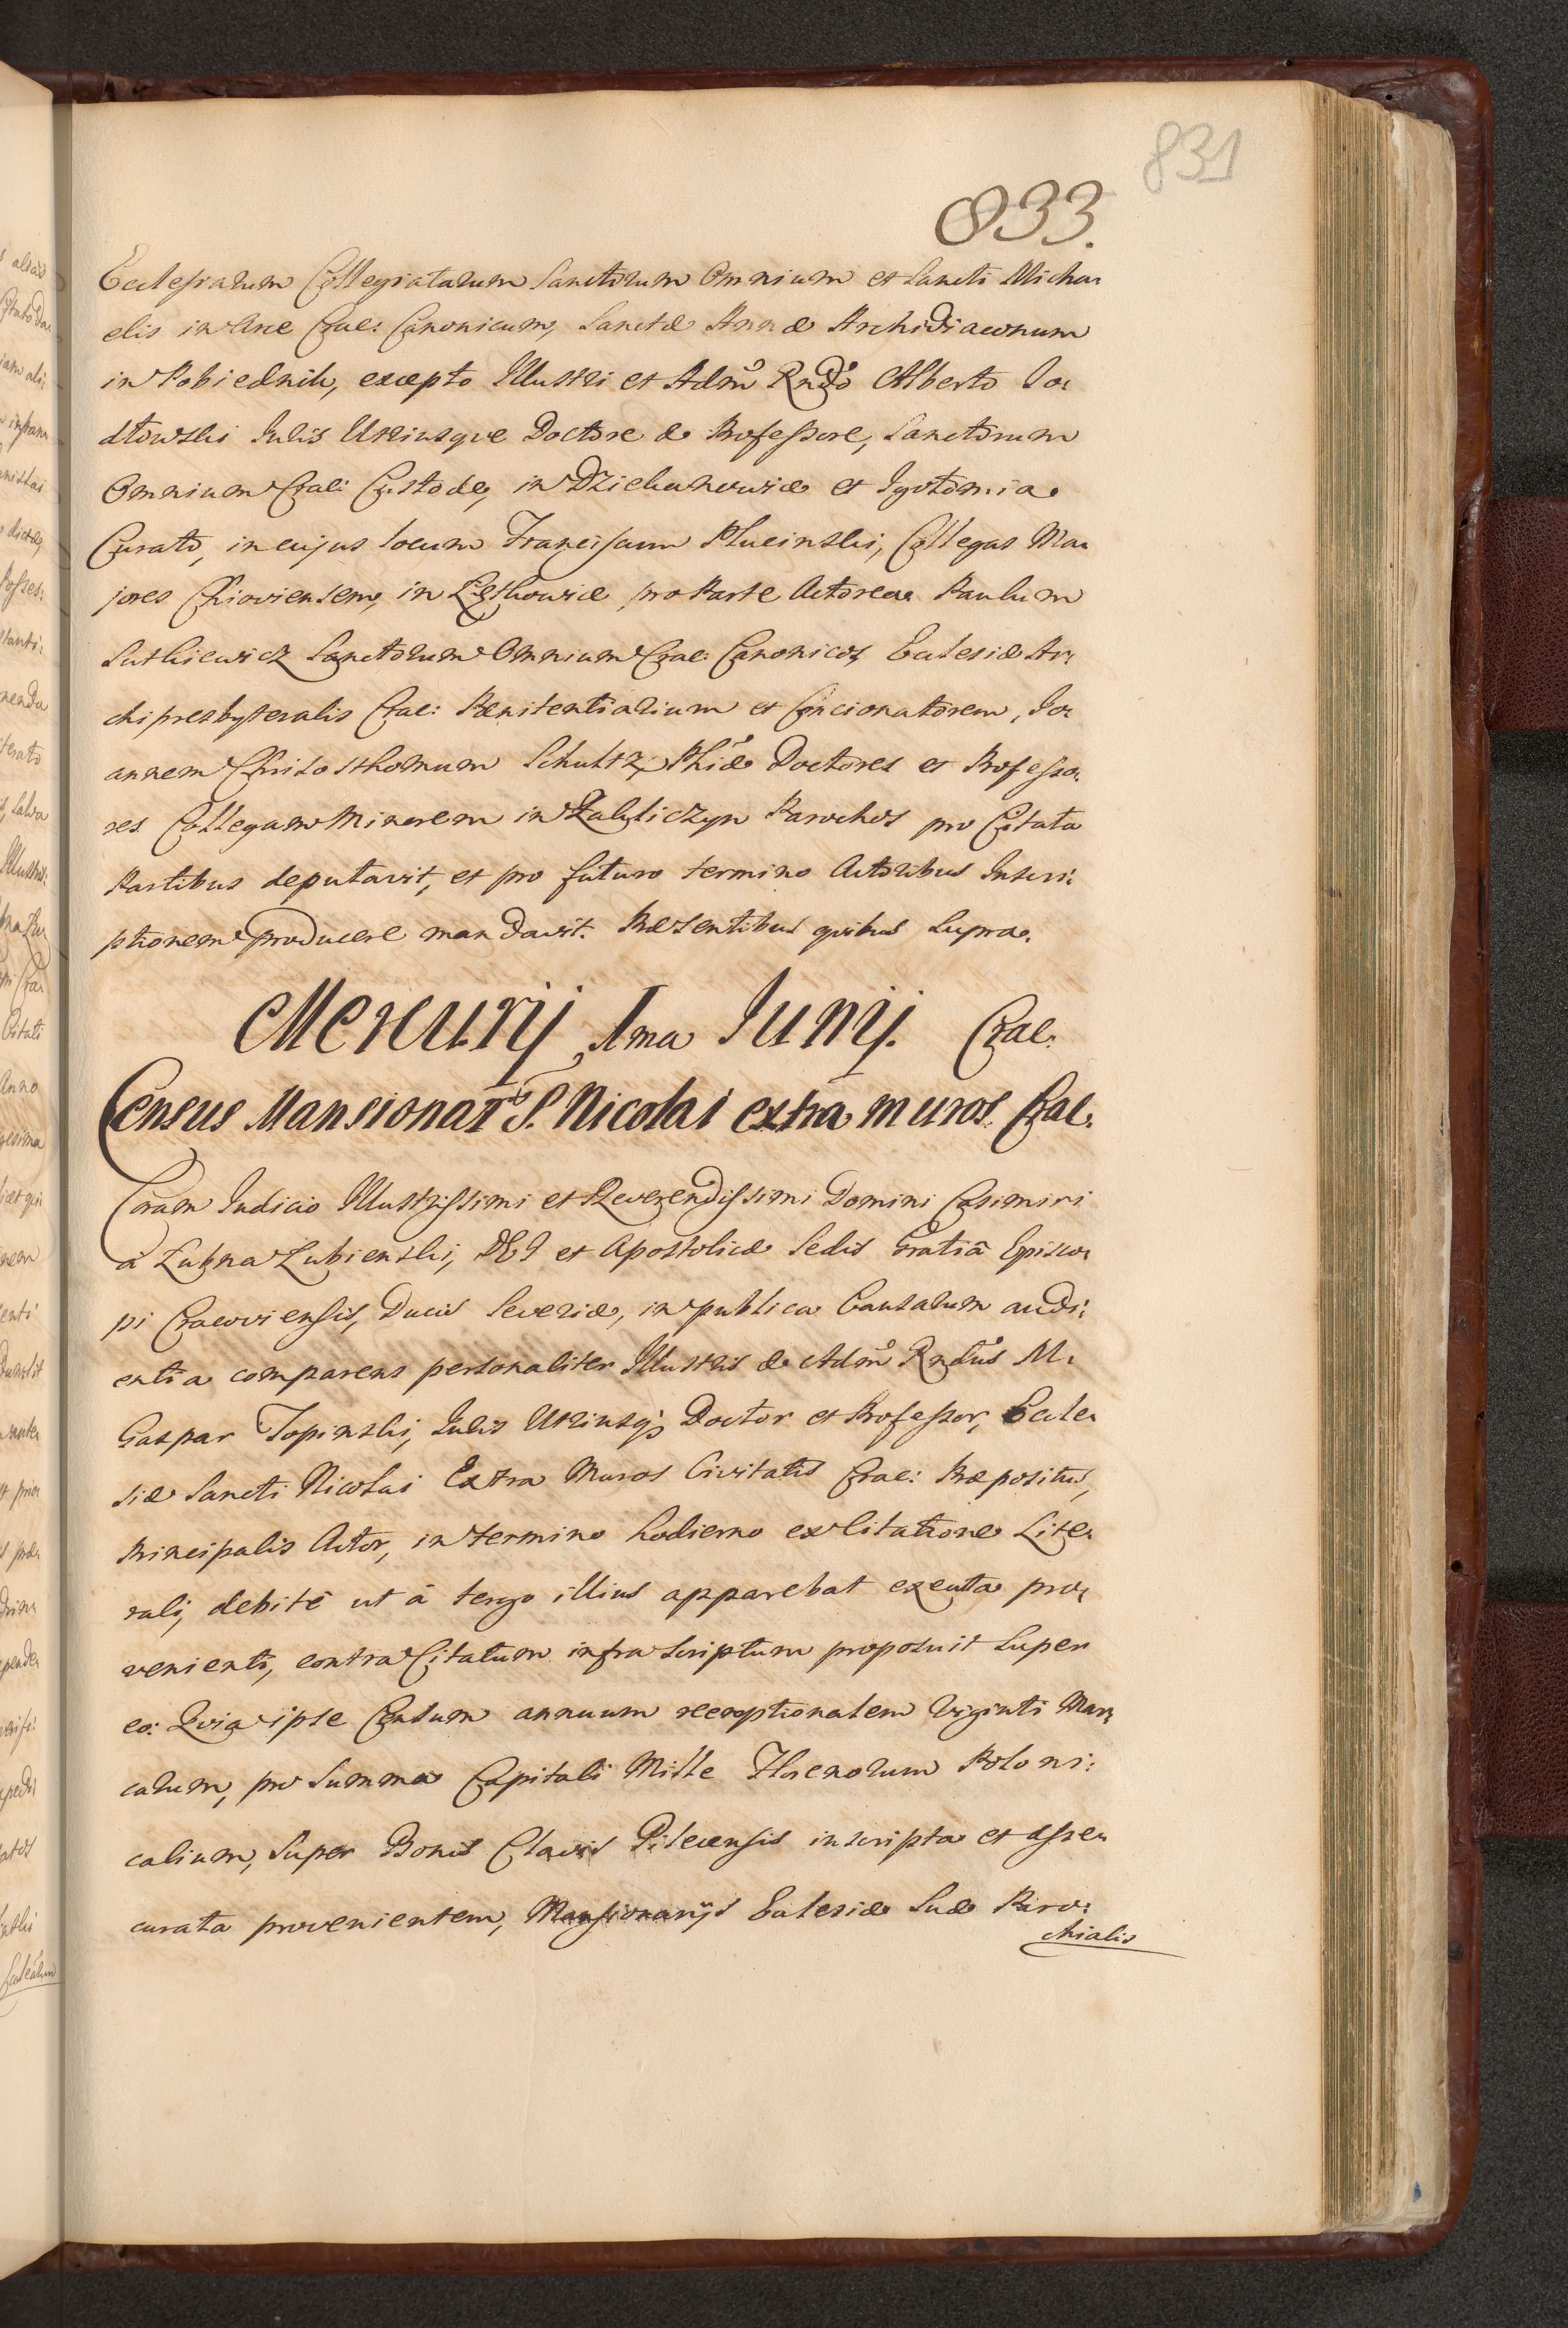 831
833.
Ecclesiarum Collegiatarum Sanctorum Omnium et Sancti Micha:
elis in Arce Crac: Canonicum, Sanctæ Annæ Archidiaconum
in Pobiednik, excepto Illustri et Admo Rndo Alberto Jo:
dłowski Juris Utriusque Doctore & Professore, Sanctorum
Omnium Crac: Custode, in Dziekanowice et Igołomia
Curato, in cujus locum Franciscum Plucinski, Collegas Ma:
jores Chioviensem, in pro Parte Actorea Paulum
Sutkiewicz Sanctorum Omnium Crac: Canonicos, Eclesiæ Ar:
chipresbyteralis Crac: Pænitentiarium et Concionatorem, Jo:
annem Chrisosthomum Schultz, Phiæ Doctores et Professo:
res Collegam Minorem in Zakliczyn Parochos pro Citata
Partibus deputavit, et pro futuro termino Actoribus Inscri:
ptionem producere mandavit. Præsentibus quibus Supra.
Mercurij 1ma Junij. Crac.
Census Mansionar S. Nicolai extra muros Crac.
Coram Judicio Illustrissimi et Reverendissimi Domini Casimiri
à Łubna Łubienski, DEI et Apostolicæ Sedis Gratiâ Episco:
pi Cracoviensis, Ducis Severiæ, in publica Causarum audi:
entia comparens personaliter Illustris & Admo Rndus M.
Gaspar Topinski, Juris Utriusq; Doctor et Professor, Eccle:
siæ Sancti Nicolai Extra Muros Civitatis Crac: Præpositus,
Principalis Actor, in termino hodierno ex Citatione Lite:
rali, debitè ut à tergo illius apparebat executa pro:
venienti, contra Citatum infra scriptum proposuit Super
eo: Quia ipse Censum annuum reemptionalem Viginti Mar:
carum, pro Summa Capitali Mille Florenorum Poloni:
calium, Super Bonis Clavis Pilecensis inscripta et asse:
curata provenientem, Mansionarijs Eclesiæ Suæ Paro:
chialis